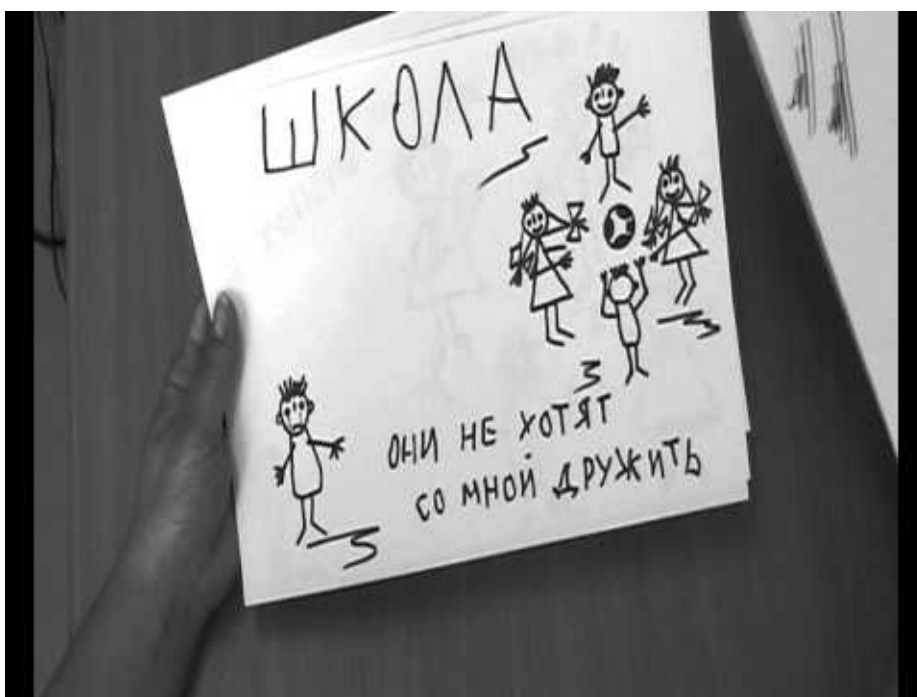 ШКОЛА
ОНИ НЕ ХОТЯТ
СО МНОЙ ДРУЖИТЬ